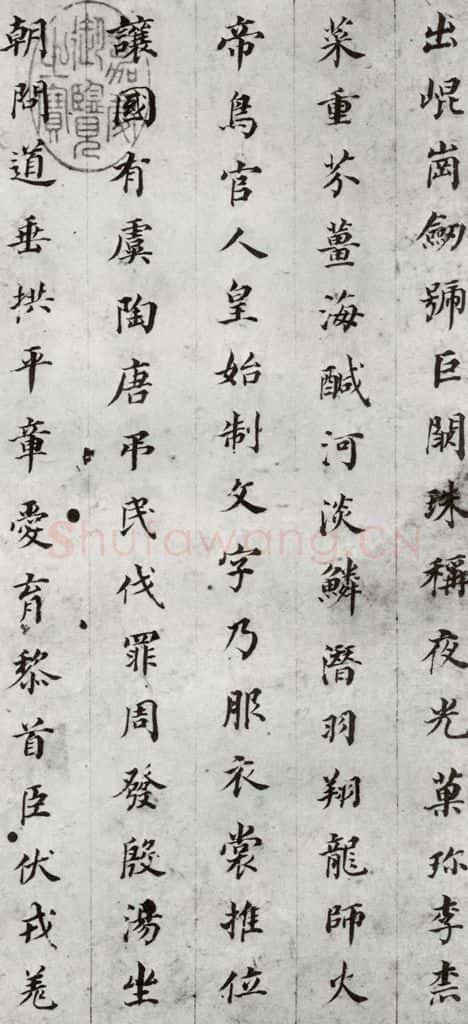 出崐崗劔號巨闕珠稱夜光菓珎李柰
菜重芥薑海醎河淡鱗潛羽翔龍師火
帝鳥官人皇始制文字乃服衣裳推位
讓國有虞陶唐吊民伐罪周發殷湯坐
朝問道垂拱平章愛育黎首臣伏戎羌
嘉慶
御覽
之寶
Shufawang.CN